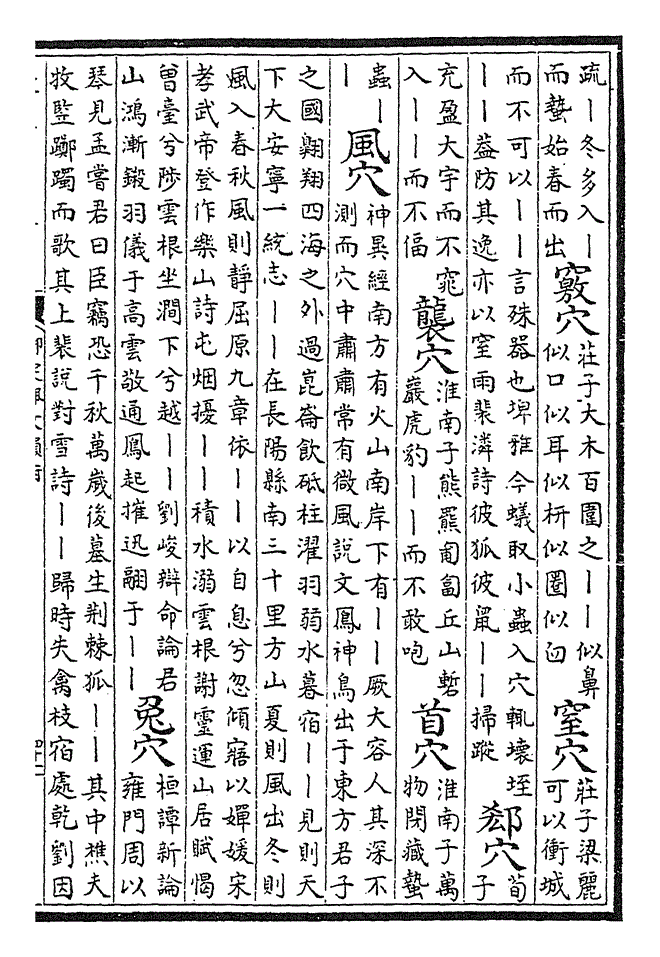 疏丨冬多入丨
而蟄始春而出
竅穴
莊子大木百圍之丨丨似鼻
似口似耳似枅似圈似臼
窒穴
莊子梁麗
可以衝城
而不可以丨丨言殊器也埤雅今蟻取小蟲入穴輒壞垤
丨丨葢防其逸亦以窒雨裴潾詩彼狐彼鼠丨丨掃蹤
郄穴
荀
子
充盈大宇而不窕
入丨丨而不偪
襲穴
淮南子熊羆匍匐丘山磛
巖虎豹丨丨而不敢咆
首穴
淮南子萬
物閉藏蟄
蟲丨
丨
風穴
神異經南方有火山南岸下有丨丨厥大容人其深不
測而穴中肅肅常有微風說文鳳神鳥出于東方君子
之國翺翔四海之外過崑崙飲砥柱濯羽弱水暮宿丨丨見則天
下大安寧一統志丨丨在長陽縣南三十里方山夏則風出冬則
風入春秋風則靜屈原九章依丨丨以自息兮忽傾寤以嬋媛宋
孝武帝登作樂山詩屯烟擾丨丨積水溺雲根謝靈運山居賦愒
曾臺兮陟雲根坐澗下兮越丨丨劉峻辯命論君
山鴻漸鎩羽儀于高雲敬通鳳起摧迅翮于丨丨
兎穴
桓譚新論
雍門周以
琴見孟嘗君曰臣竊恐千秋萬歲後墓生荆棘狐丨丨其中樵夫
牧豎躑躅而歌其上裴說對雪詩丨丨歸時失禽枝宿處乾劉因